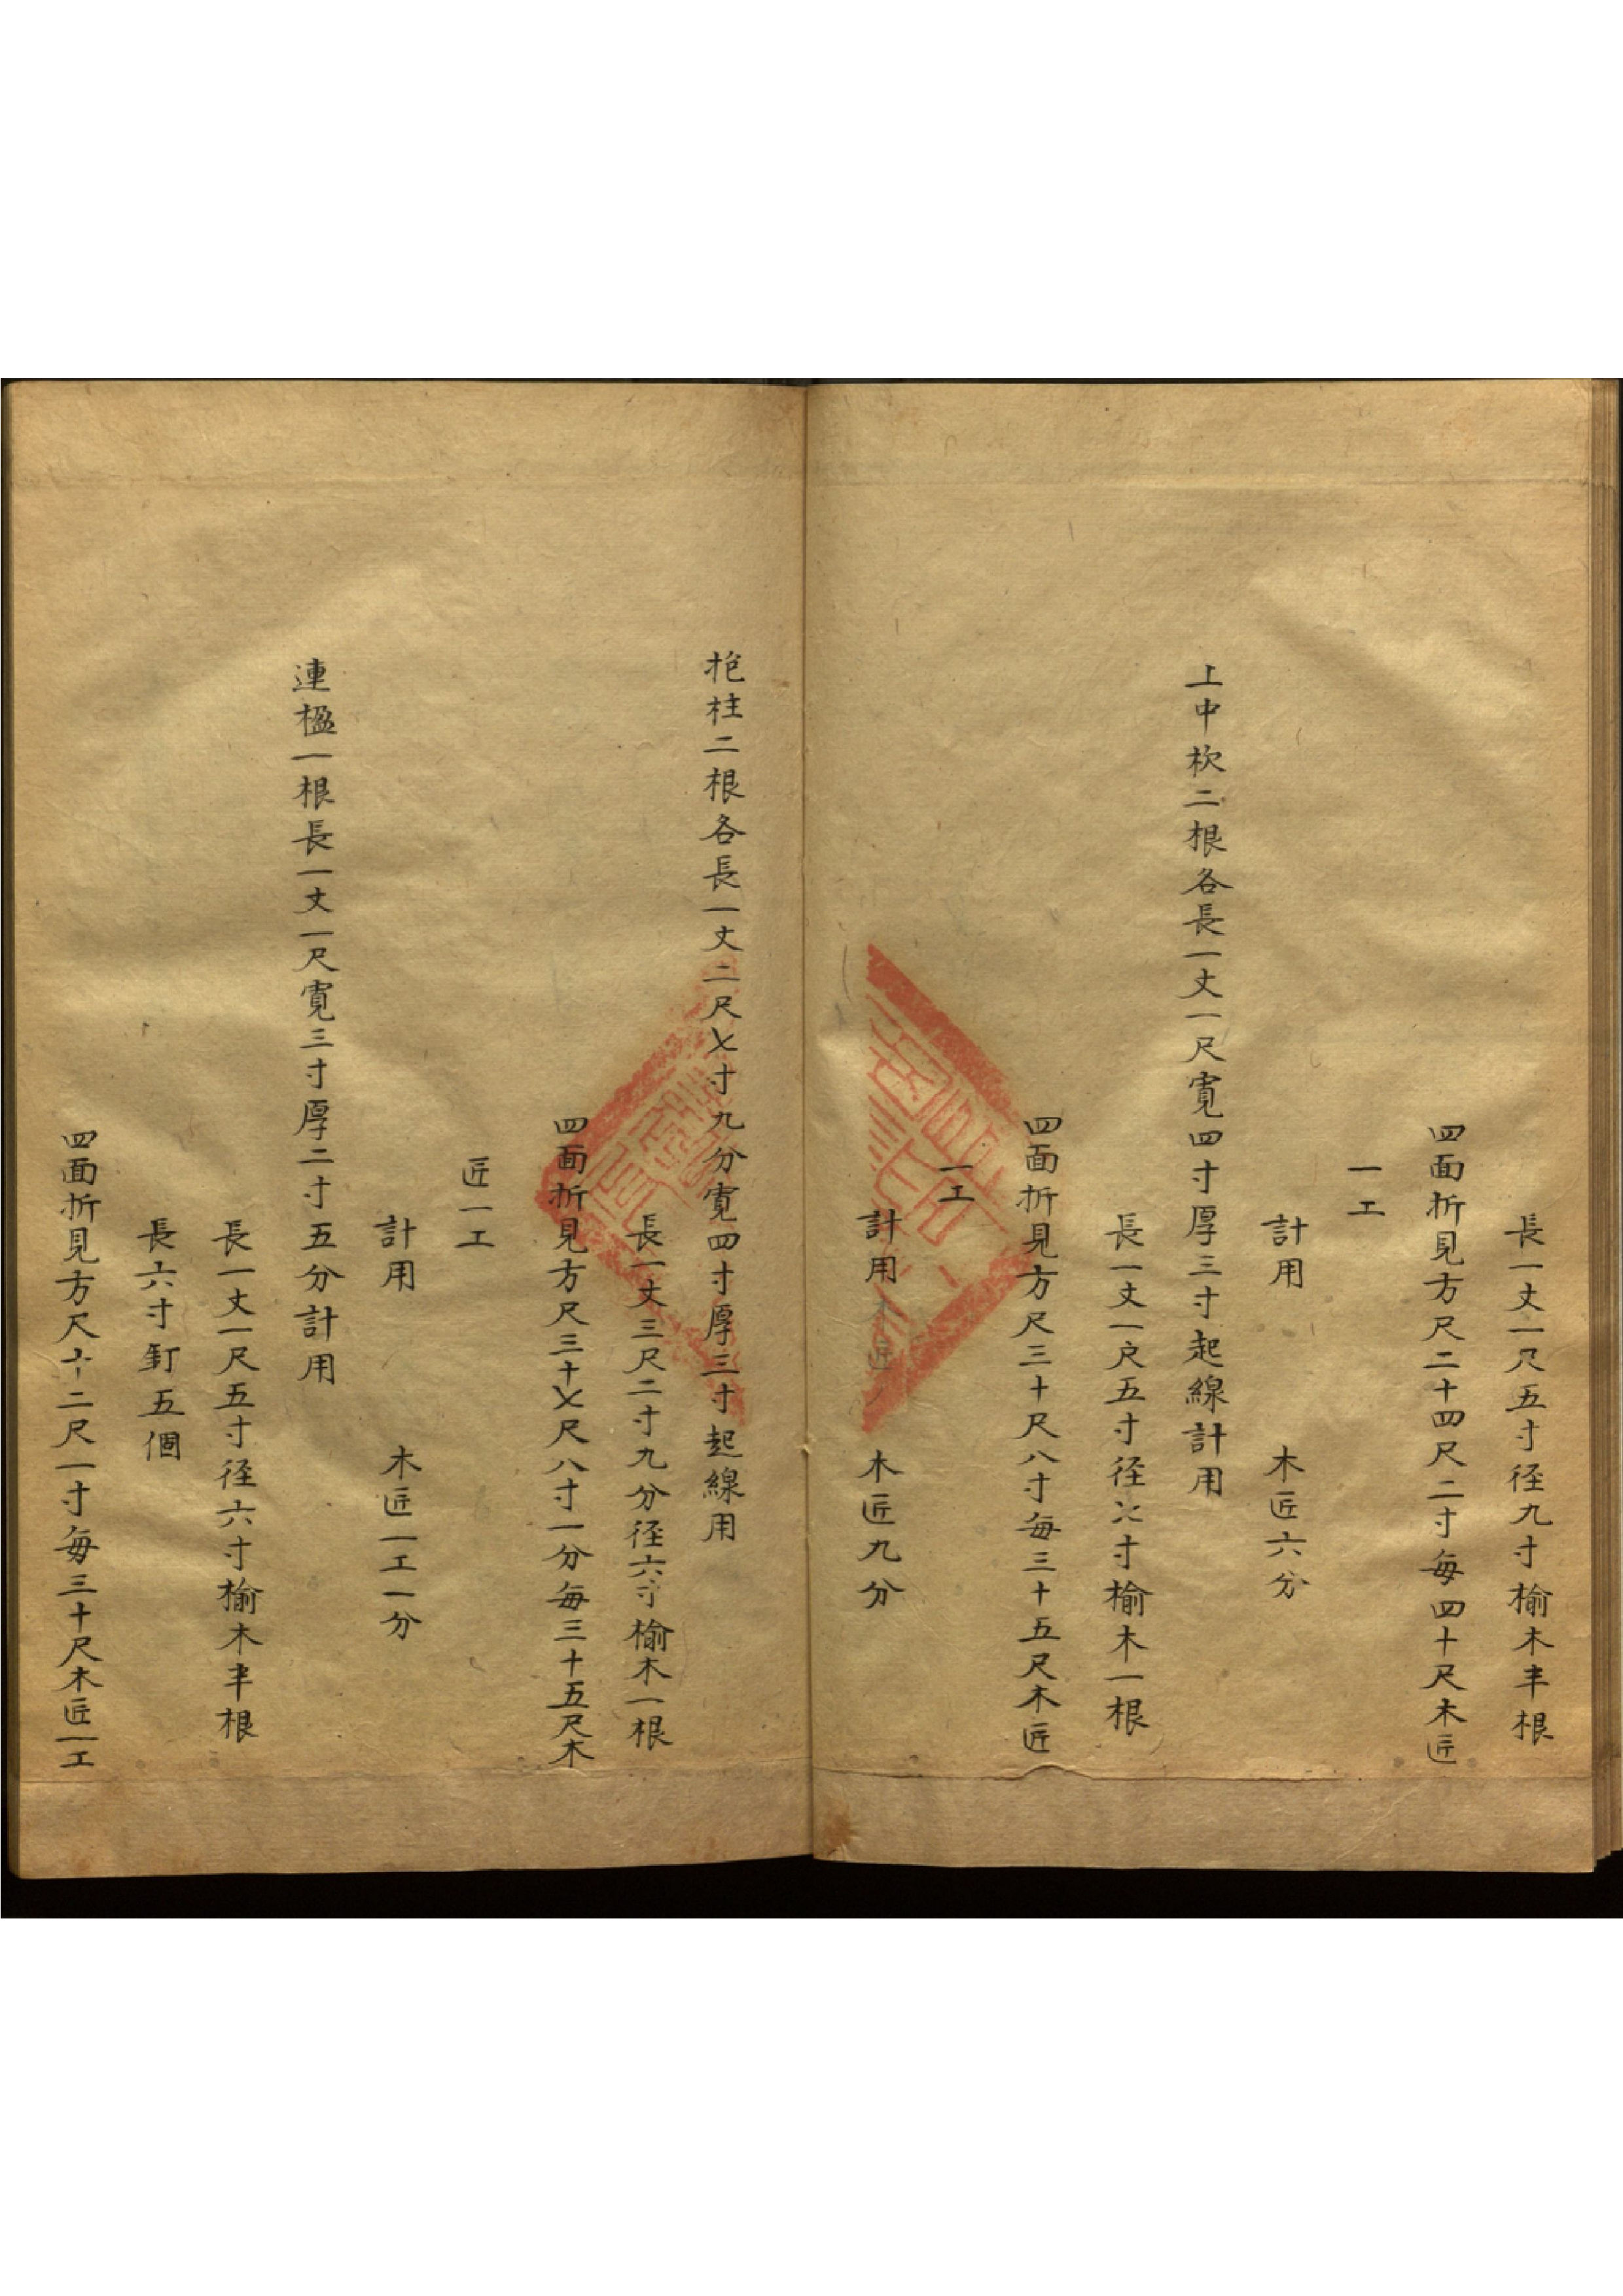 長一丈一尺五寸径九寸榆木半根
四面折見方尺二十四尺二寸每四十尺木匠
一工
計用　木匠六分
上中杴二根各長一丈一尺寬四寸厚三寸起線計用
長一丈一尺五寸径六寸榆木一根
四面折見方尺三十尺八寸每三十五尺木匠
一工
計用　木匠九分
抱柱二根各長一丈二尺七寸九分寬四寸厚三寸起線用
長一丈三尺二寸九分径六寸榆木一根
四面折見方尺三十七尺八寸一分每三十五尺木
匠一工
計用　木匠一工一分
連楹一根長一丈一尺寬三寸厚二寸五分計用
長一丈一尺五寸径六寸榆木半根
長六寸釘五個
四面折見方尺十二尺一寸每三十尺木匠一工